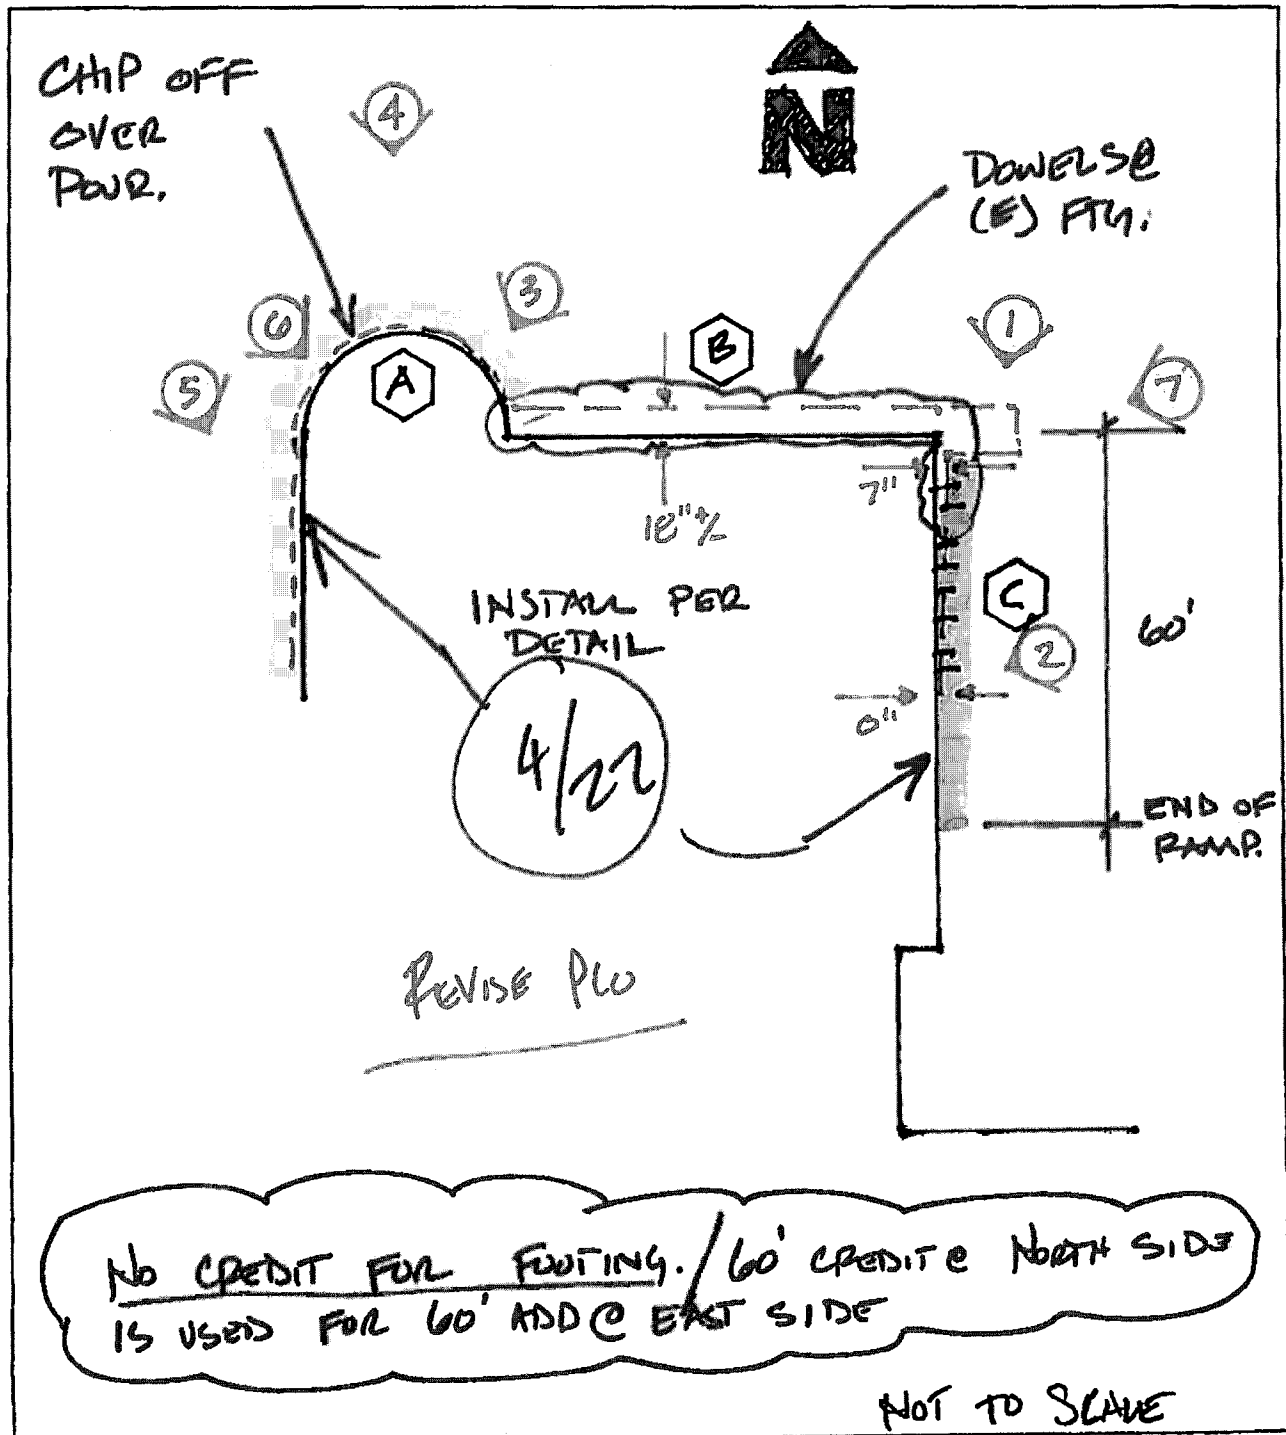 CHIP OFF
OVER
POUR.
4
N
DOWELS@
(E) FTG.
3
6
5
A
B
1
7
7"
18" +/-
INSTALL PER
DETAIL
4/22
C
2
60'
0"
END OF
RAMP.
REVISE
NO CREDIT FOR FOOTING. / 60' CREDIT @ NORTH SIDE
IS USED FOR 60' ADD @ EAST SIDE
NOT TO SCALE